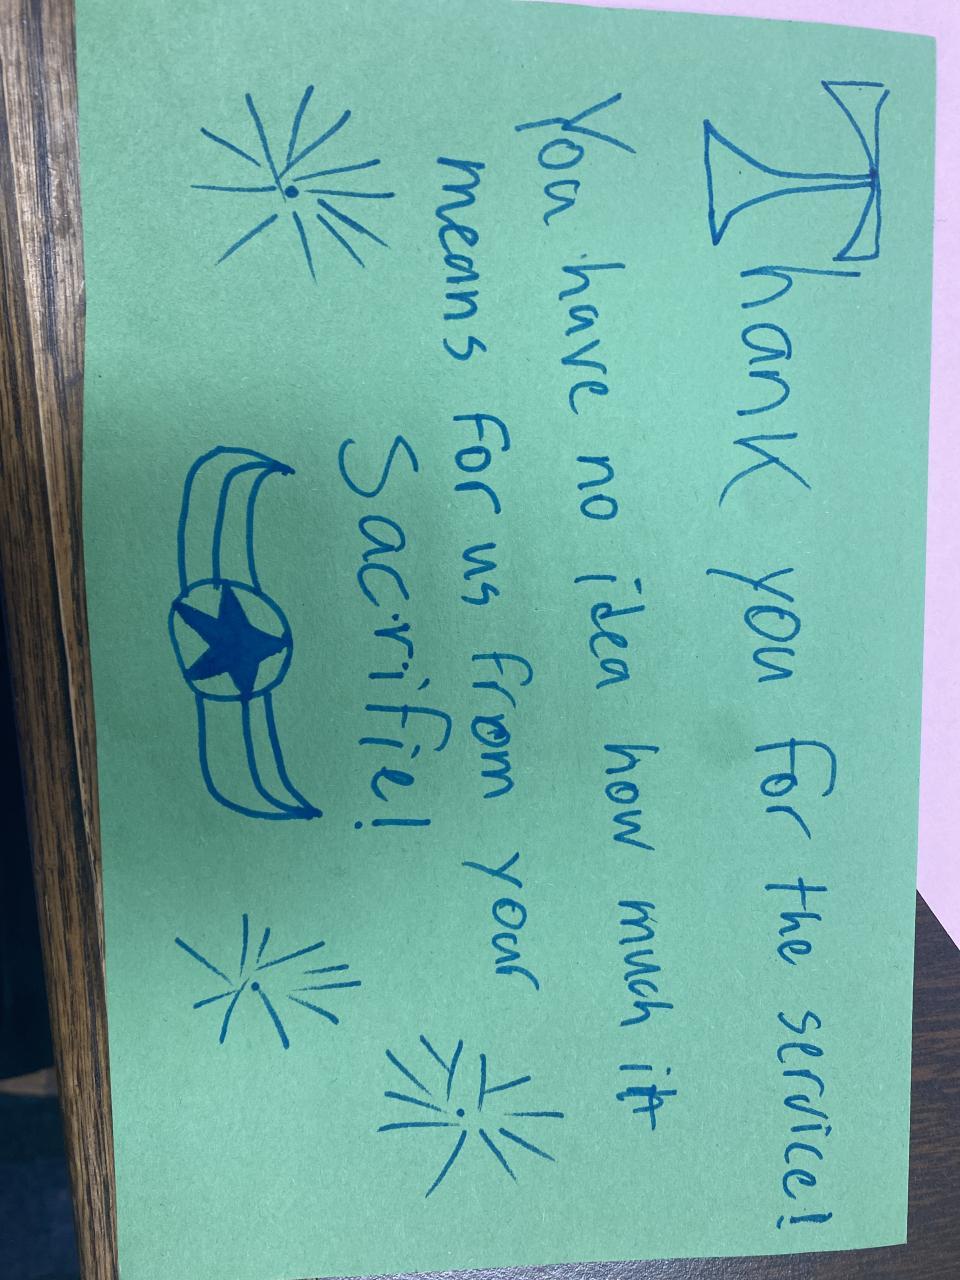 Thank you for the service!
You have no idea how much it
means for us from your
Sacrifie!